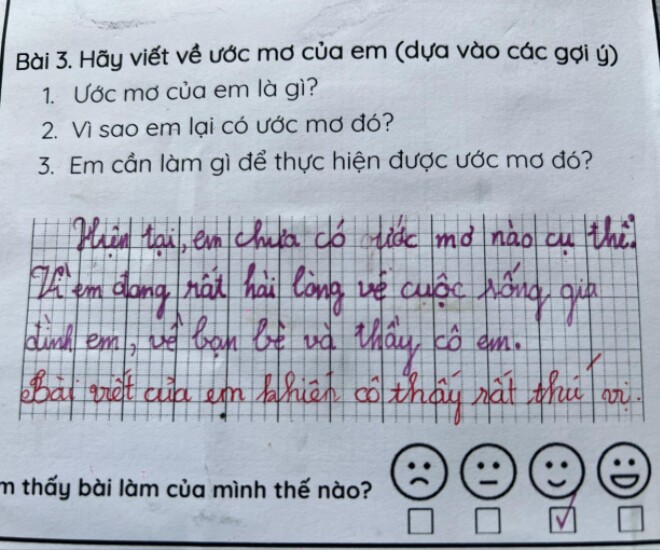 Bài 3. Hãy viết về ước mơ của em (dựa vào các gợi ý)
1. Ước mơ của em là gì?
2. Vì sao em lại có ước mơ đó?
3. Em cần làm gì để thực hiện được ước mơ đó?
Hiện tại, em chưa có ước mơ nào cụ thể.
Vì em đang rất hài lòng về cuộc sống gia
đình em, về bạn bè và thầy, cô em.
Bài viết của em khiến cô thấy rất thú vị.
m thấy bài làm của mình thế nào?